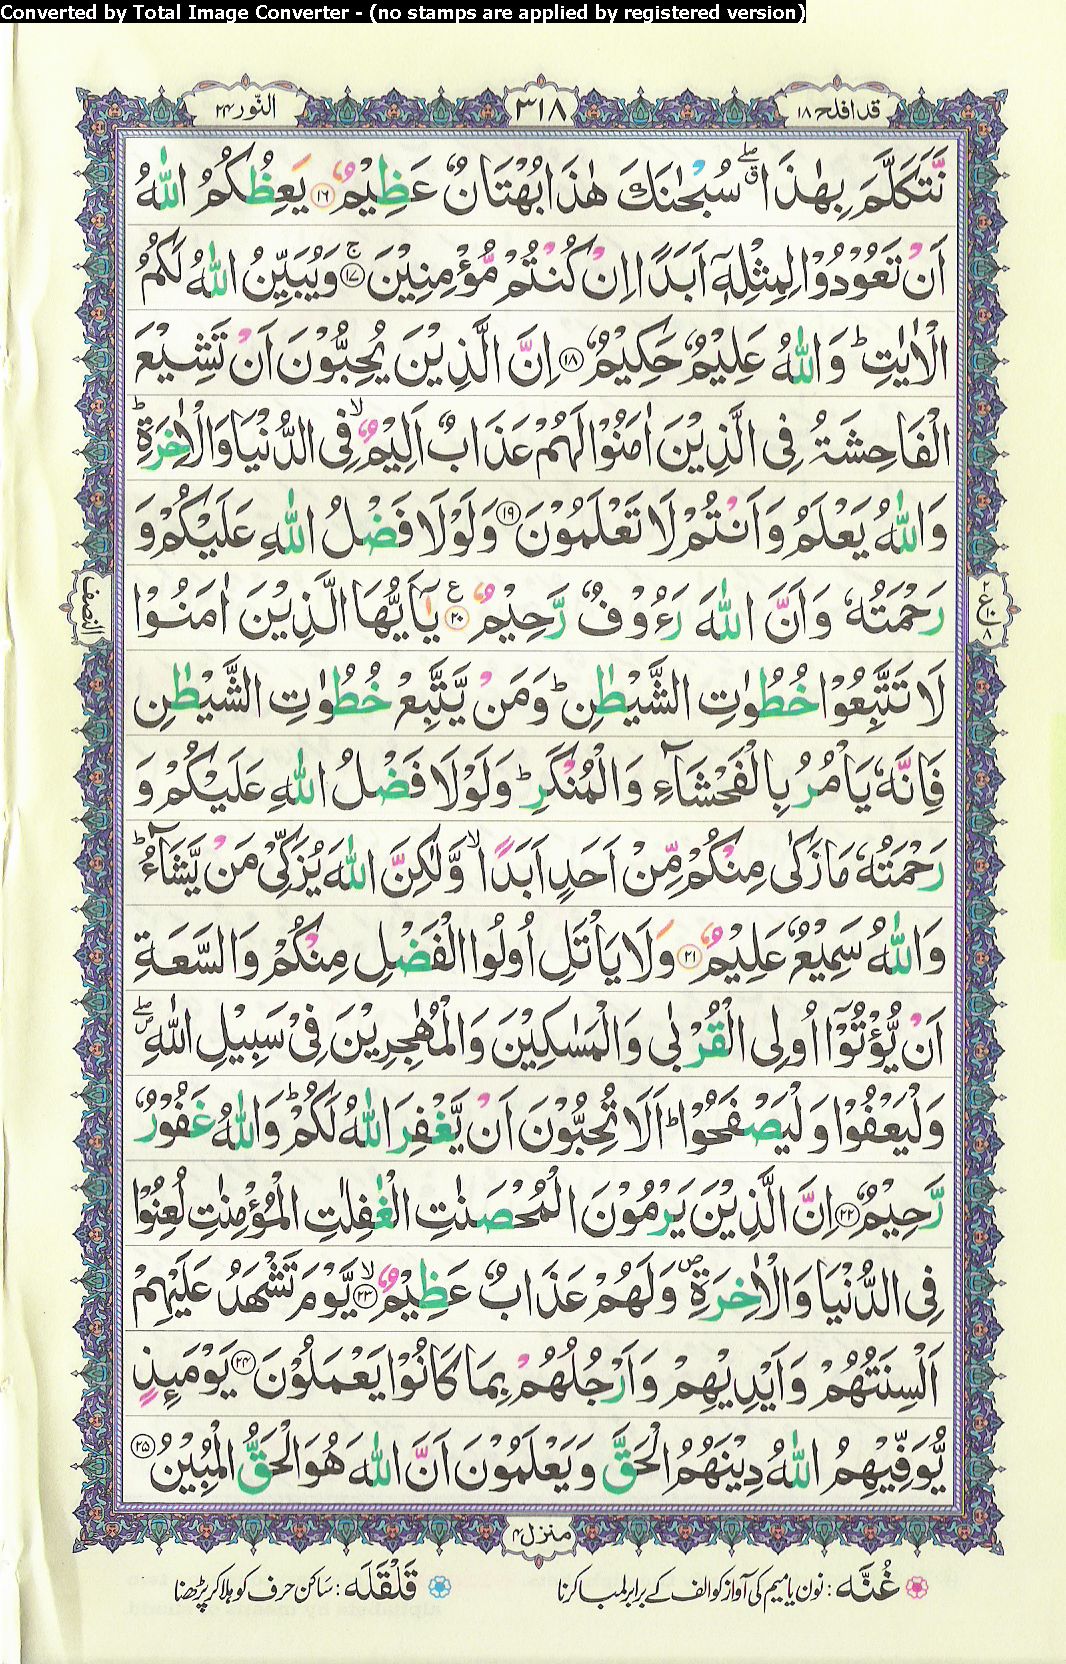 Converted by Total Image Converter - (no stamps are applied by registered version)
قد افلح ۱۸
۳۱۸
النّور ۲۴
نَّتَكَلَّمَ بِهٰذَا ۖق سُبْحٰنَكَ هٰذَا بُهْتَانٌ عَظِيْمٌ ﴿۱۶﴾ يَعِظُكُمُ اللّٰهُ
اَنْ تَعُوْدُوْا لِمِثْلِهٖۤ اَبَدًا اِنْ كُنْتُمْ مُّؤْمِنِيْنَ ﴿ۚ۱۷﴾ وَيُبَيِّنُ اللّٰهُ لَكُمُ
الْاٰيٰتِ ؕ وَاللّٰهُ عَلِيْمٌ حَكِيْمٌ ﴿۱۸﴾ اِنَّ الَّذِيْنَ يُحِبُّوْنَ اَنْ تَشِيْعَ
الْفَاحِشَةُ فِى الَّذِيْنَ اٰمَنُوْا لَهُمْ عَذَابٌ اَلِيْمٌ ۙ فِى الدُّنْيَا وَالْاٰخِرَةِ ؕ
وَاللّٰهُ يَعْلَمُ وَاَنْتُمْ لَا تَعْلَمُوْنَ ﴿۱۹﴾ وَلَوْلَا فَضْلُ اللّٰهِ عَلَيْكُمْ وَ
رَحْمَتُهٗ وَاَنَّ اللّٰهَ رَءُوْفٌ رَّحِيْمٌ ﴿۲۰﴾ ع يٰۤاَيُّهَا الَّذِيْنَ اٰمَنُوْا
لَا تَتَّبِعُوْا خُطُوٰتِ الشَّيْطٰنِ ؕ وَمَنْ يَّتَّبِعْ خُطُوٰتِ الشَّيْطٰنِ
فَاِنَّهٗ يَاْمُرُ بِالْفَحْشَآءِ وَالْمُنْكَرِ ؕ وَلَوْلَا فَضْلُ اللّٰهِ عَلَيْكُمْ وَ
رَحْمَتُهٗ مَا زَكٰى مِنْكُمْ مِّنْ اَحَدٍ اَبَدًا ۙ وَّلٰكِنَّ اللّٰهَ يُزَكِّىْ مَنْ يَّشَآءُ ؕ
وَاللّٰهُ سَمِيْعٌ عَلِيْمٌ ﴿۲۱﴾ وَلَا يَاْتَلِ اُولُوا الْفَضْلِ مِنْكُمْ وَالسَّعَةِ
اَنْ يُّؤْتُوْۤا اُولِى الْقُرْبٰى وَالْمَسٰكِيْنَ وَالْمُهٰجِرِيْنَ فِىْ سَبِيْلِ اللّٰهِ ۖص
وَلْيَعْفُوْا وَلْيَصْفَحُوْا ؕ اَلَا تُحِبُّوْنَ اَنْ يَّغْفِرَ اللّٰهُ لَكُمْ ؕ وَاللّٰهُ غَفُوْرٌ
رَّحِيْمٌ ﴿۲۲﴾ اِنَّ الَّذِيْنَ يَرْمُوْنَ الْمُحْصَنٰتِ الْغٰفِلٰتِ الْمُؤْمِنٰتِ لُعِنُوْا
فِى الدُّنْيَا وَالْاٰخِرَةِ ۪ وَلَهُمْ عَذَابٌ عَظِيْمٌ ﴿ۙ۲۳﴾ يَّوْمَ تَشْهَدُ عَلَيْهِمْ
اَلْسِنَتُهُمْ وَاَيْدِيْهِمْ وَاَرْجُلُهُمْ بِمَا كَانُوْا يَعْمَلُوْنَ ﴿۲۴﴾ يَوْمَئِذٍ
يُّوَفِّيْهِمُ اللّٰهُ دِيْنَهُمُ الْحَقَّ وَيَعْلَمُوْنَ اَنَّ اللّٰهَ هُوَ الْحَقُّ الْمُبِيْنُ ﴿۲۵﴾
۲ ع ۱۰ ۸
النصف
منزل ۴
غُنَّه : نون یا میم کی آواز کو الف کے برابر لمبا کرنا
قَلْقَلَه : ساکن حرف کو ہلا کر پڑھنا